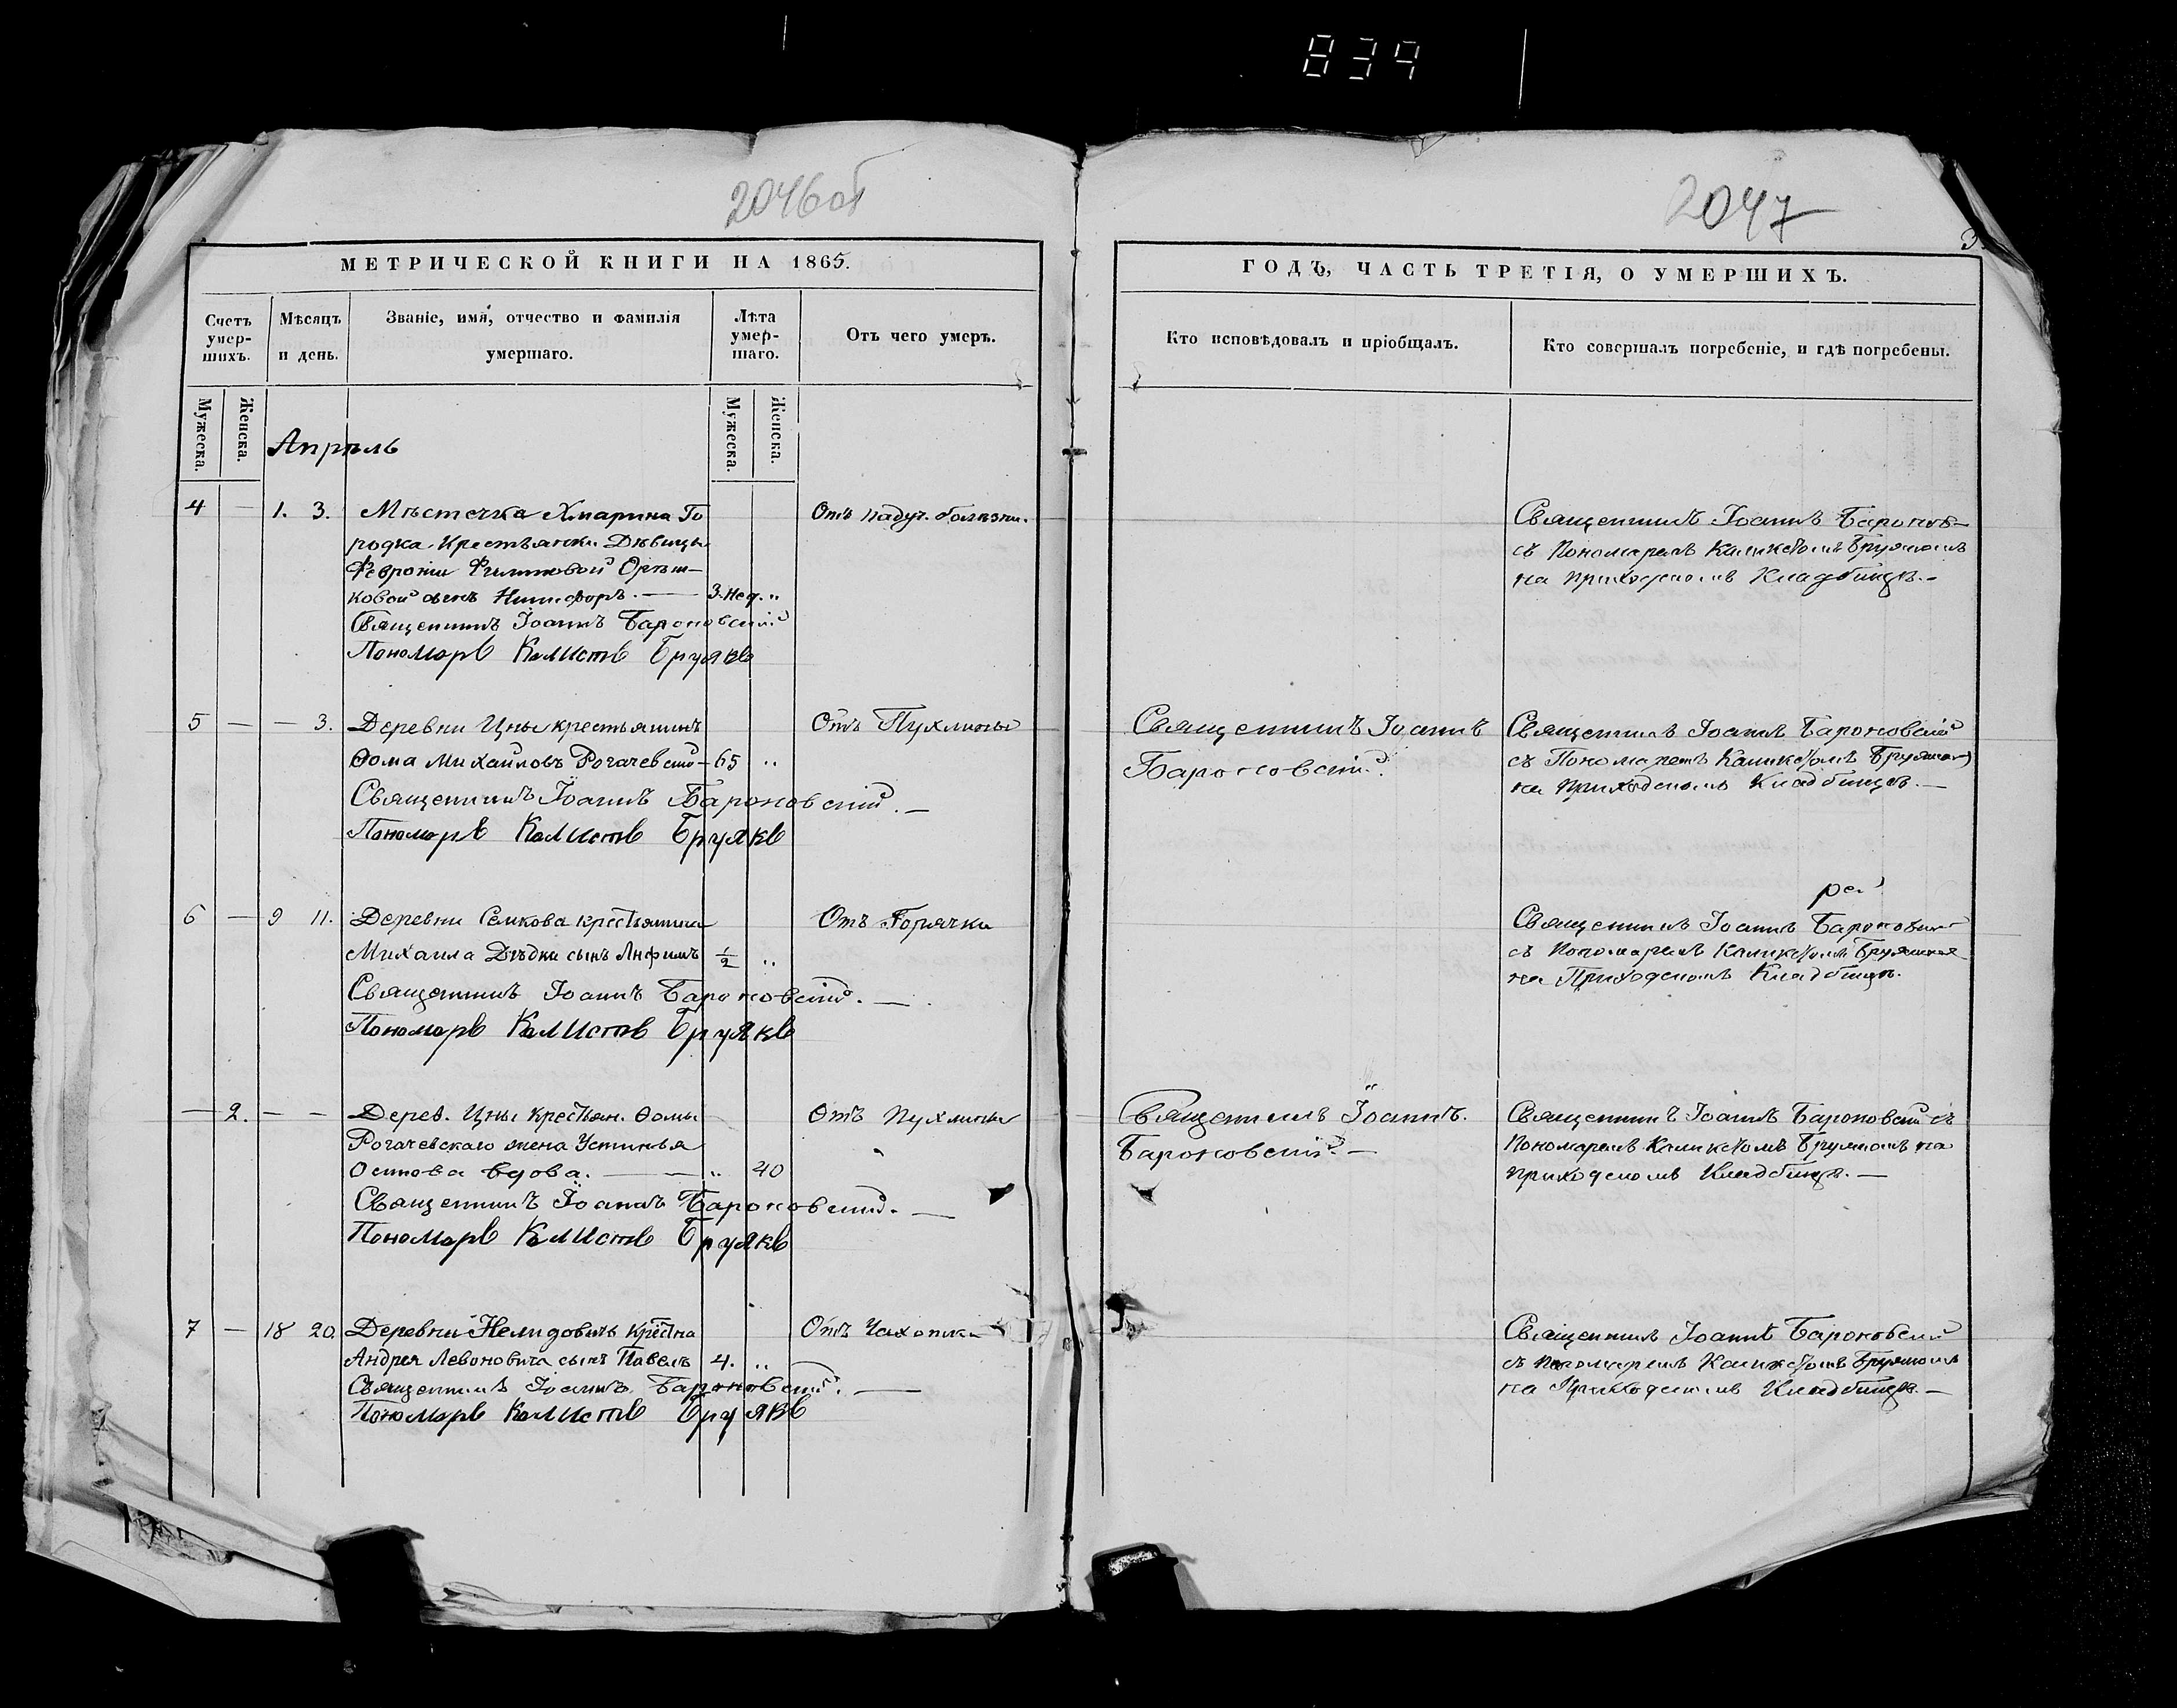 839
2046об
2047
3.
МЕТРИЧЕСКОЙ КНИГИ НА 1865.
ГОДЪ, ЧАСТЬ ТРЕТІЯ, О УМЕРШИХЪ.
Счетъ умер-шихъ.
Мѣсяцъ и день.
Званіе, имя, отчество и фамилія умершаго.
Лѣта умер-шаго.
Отъ чего умеръ.
Кто исповѣдовалъ и пріобщалъ.
Кто совершалъ погребеніе, и гдѣ погребены.
Мужеска.
Женска.
Мужеска.
Женска.
Апрѣль
4 — 1. 3. Мѣстечка Хмарина Го
родка. Крестьянки Дѣвицы
Февроніи Филиповой Орѣш-
ковой сынъ Никифоръ. — 3. нед. „
Отъ падуч. болѣзни.
Священникъ Іоаннъ Бароновскій
Пономарь Калистъ Бруякъ
Священникъ Іоаннъ Баронов-
съ Пономаремъ Каликстомъ Бруякомъ
на приходскомъ Кладбищѣ. -
5 — — 3. Деревни Цны крестьянинъ
Ѳома Михайловъ Рогачевскій - 65 „
Отъ Пухлины
Священникъ Іоаннъ Бароновскій. —
Пономарь Калистъ Бруякъ
Священникъ Іоаннъ
Бароновскій.
Священникъ Іоаннъ Бароновскій
съ Пономаремъ Каликстомъ Бруякомъ
на приходскомъ Кладбищѣ. —
6 — 9 11. Деревни Селкова крестьянина
Михаила Дѣдки сынъ Анфимъ ½ „
Отъ Горячки
Священникъ Іоаннъ Бароновскій. —
Пономарь Калистъ Бруякъ
Священникъ Іоаннъ Бароновскій
съ Пономаремъ Каликстомъ Бруякомъ
на Приходскомъ Кладбищѣ.
— 2. — — Дерев. Цны крестьян. Ѳомы
Рогачевскаго жена Устинья
Осипова вдова. — „ 40
Отъ Пухлины
Священникъ Іоаннъ Бароновскій. —
Пономарь Калистъ Бруякъ
Священникъ Іоаннъ.
Бароновскій. —
Священникъ Іоаннъ Бароновскій съ
Пономаремъ Каликстомъ Бруякомъ на
приходскомъ Кладбищѣ. —
7 — 18 20. Деревни Нелидовичъ крестна
Андрея Левоновича сынъ Павелъ 4. „
Отъ Чахотки
Священникъ Іоаннъ Бароновскій. —
Пономарь Калистъ Бруякъ
Священникъ Іоаннъ Бароновскій
съ Пономаремъ Каликстомъ Бруякомъ
на Приходскомъ Кладбищѣ. —